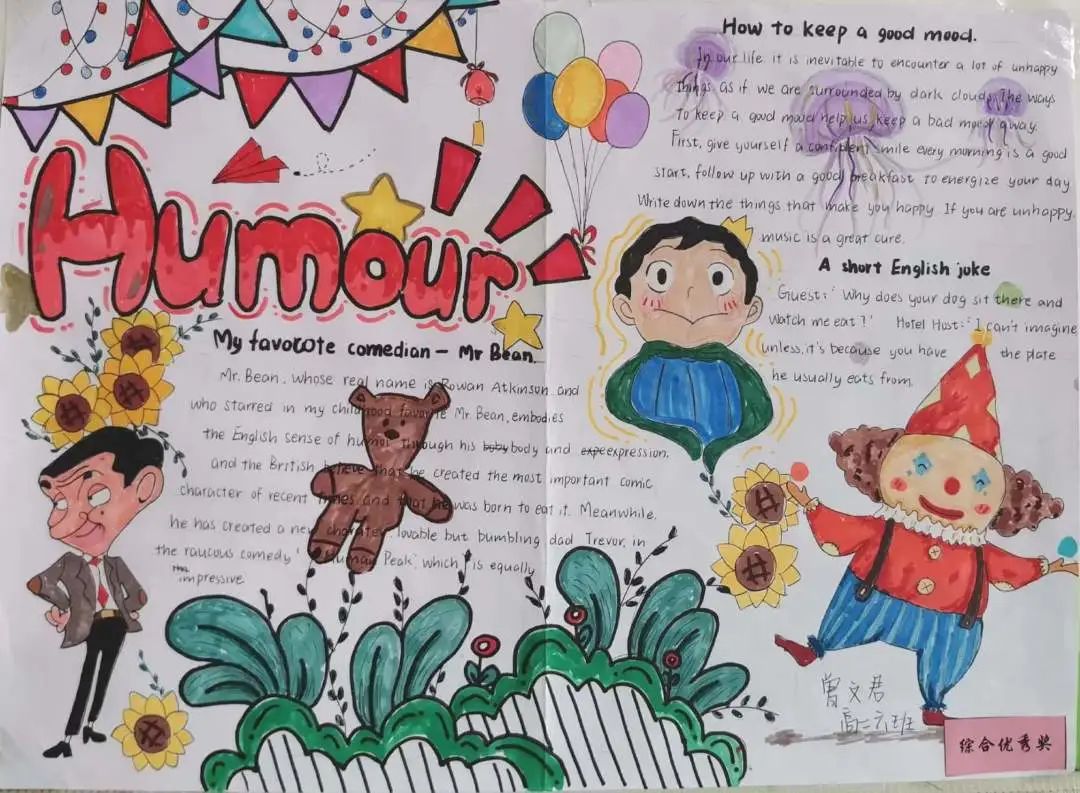 Humour
My favorote comedian - Mr Bean.
Mr. Bean. whose real name is Rowan Atkinson and
who starred in my childhood favorite Mr. Bean, embodies
the English sense of humor through his body and expression.
and the British believe that he created the most important comic
character of recent times and that he was born to eat it. Meanwhile,
he has created a new character, lovable but bumbling dad Trevor, in
the raucous comedy ' Human Peak, which is equally
impressive
How to keep a good mood.
In our life it is inevitable to encounter a lot of unhappy
things as if we are surrounded by dark clouds. The ways
to keep a good mood help us keep a bad mood away.
First, give yourself a confident smile every morning is a good
start, follow up with a good breakfast to energize your day
Write down the things that make you happy. If you are unhappy,
music is a great cure.
A short English joke
Guest: ' Why does your dog sit there and
watch me eat?' Hotel Host: 'I can't imagine
unless, it's because you have the plate
he usually eats from.
曾文君
高二六班
综合优秀奖